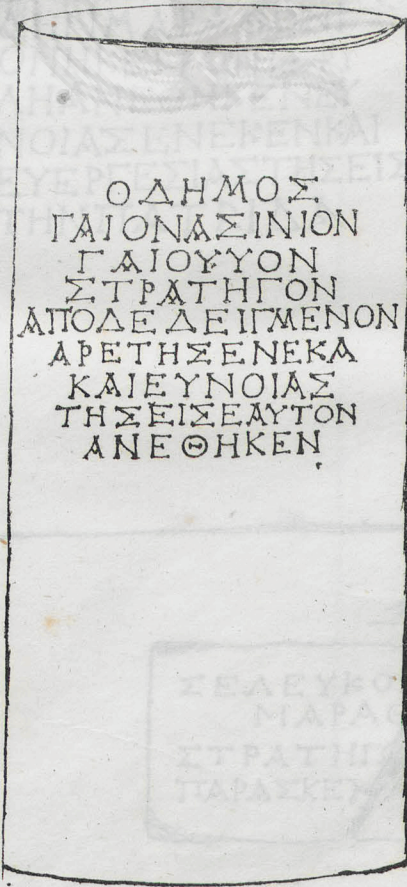 ΟΔΗΜΟΣ
ΓΑΙΟΝΑΣΙΝΙΟΝ
ΓΑΙΟΥΥΟΝ
ΣΤΡΑΤΗΓΟΝ
ΑΠΟΔΕΔΕΙΓΜΕΝΟΝ
ΑΡΕΤΗΣΕΝΕΚΑ
ΚΑΙΕΥΝΟΙΑΣ
ΤΗΣΕΙΣΕΑΥΤΟΝ
ΑΝΕΘΗΚΕΝ